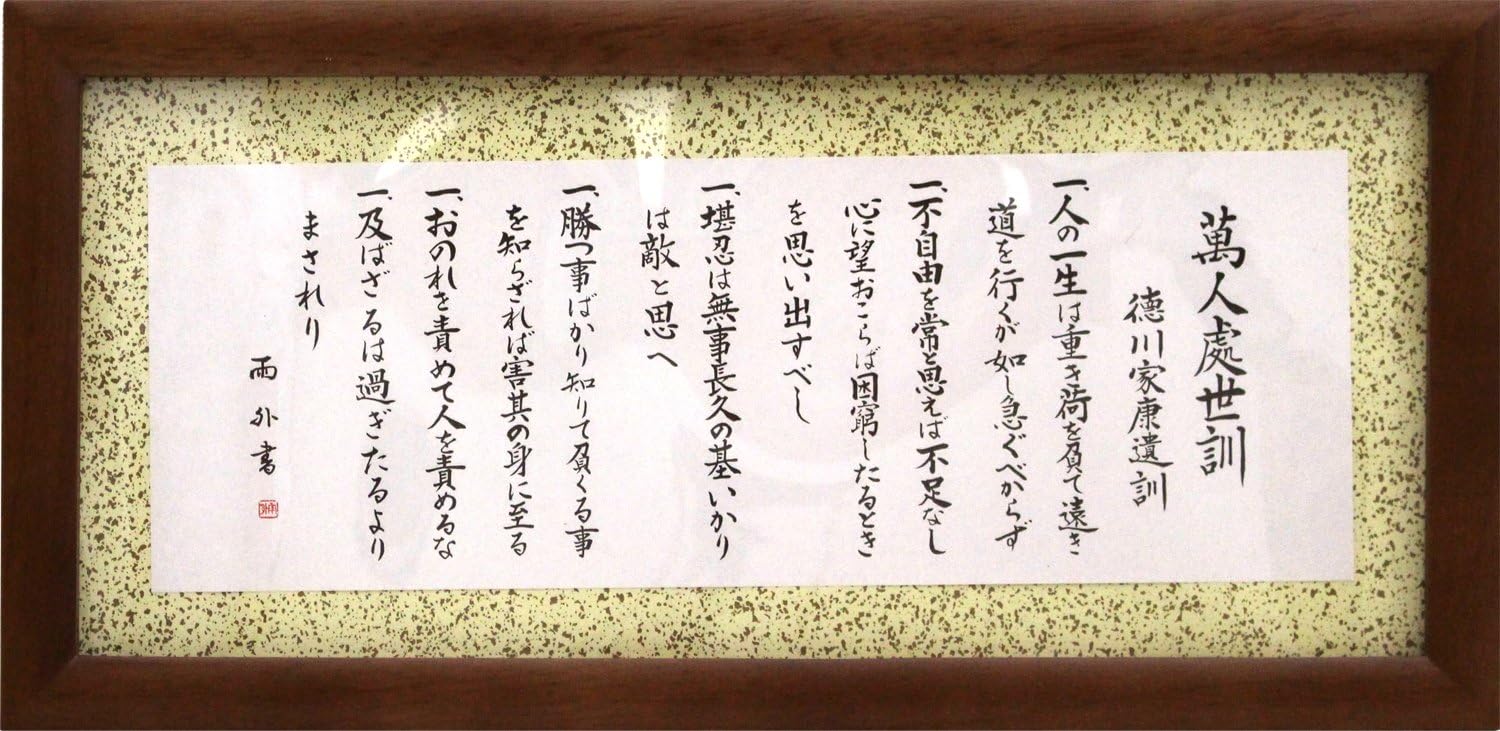 萬人處世訓
徳川家康遺訓
一、人の一生は重き荷を負て遠き
道を行くが如し急ぐべからず
一、不自由を常と思えば不足なし
心に望おこらば困窮したるとき
を思い出すべし
一、堪忍は無事長久の基いかり
は敵と思へ
一、勝つ事ばかり知りて負くる事
を知らざれば害其の身に至る
一、おのれを責めて人を責めるな
一、及ばざるは過ぎたるより
まされり
雨外書